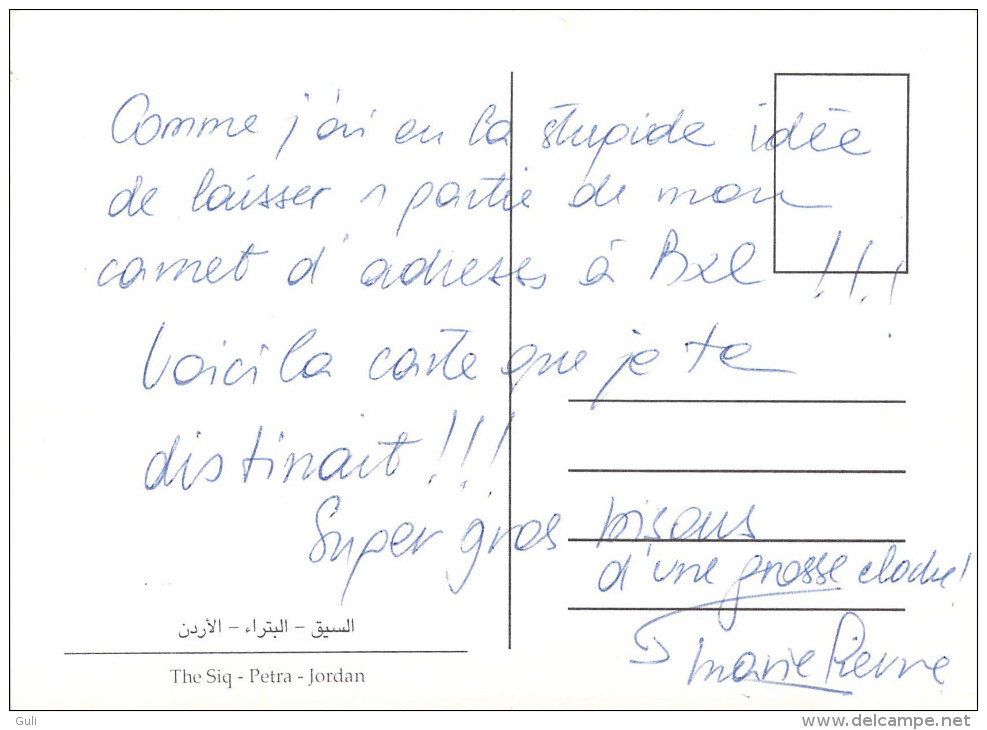 Comme j'ai eu la stupide idée
de laisser 1 partie de mon
carnet d'adresses à Bxl !!!
Voici la carte que je te
distinait !!!
Super gros bisous
d'une grosse cloche!
Marie Pierre
السيق - البتراء - الأردن
The Siq - Petra - Jordan
Guli
www.delcampe.net